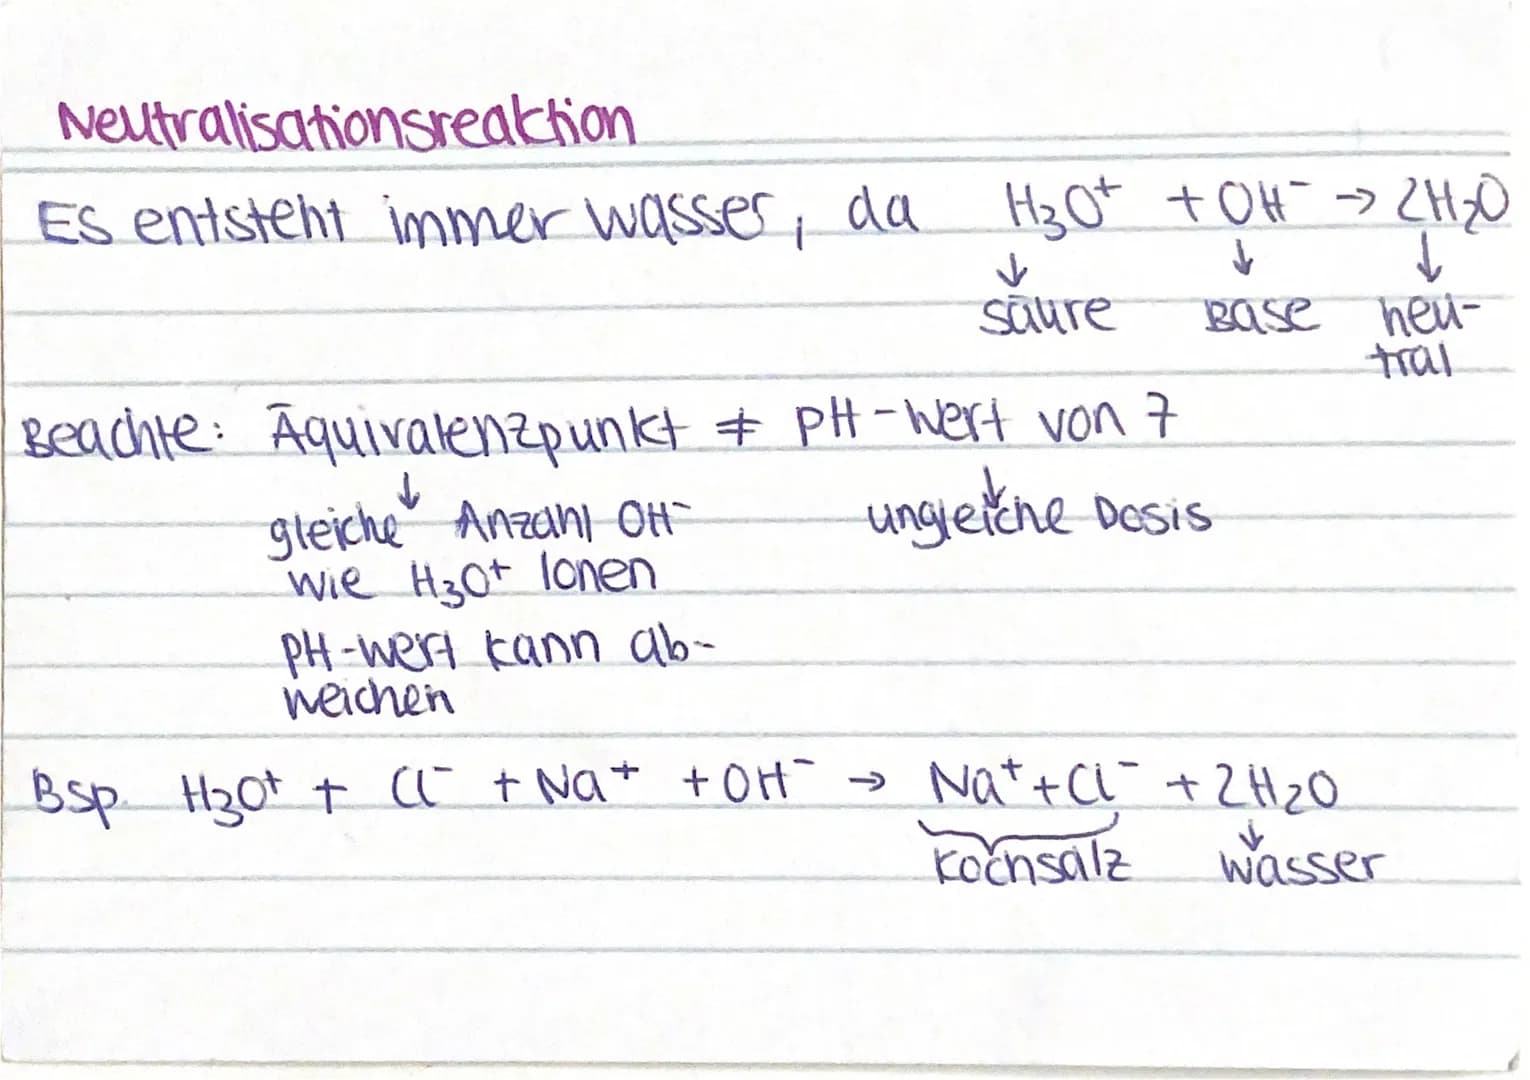 Neutralisationsreaktion
Es entsteht immer Wasser, da H₃O⁺ + OH⁻ → 2H₂O
↓ ↓ ↓
Säure Base neu-
tral
Beachte: Äquivalenzpunkt ≠ pH-Wert von 7
↓ ↓
gleiche Anzahl OH⁻ ungleiche Dosis
wie H₃O⁺ Ionen
pH-Wert kann ab-
weichen
Bsp. H₃O⁺ + Cl⁻ + Na⁺ + OH⁻ → Na⁺ + Cl⁻ + 2H₂O
↓
Kochsalz Wasser